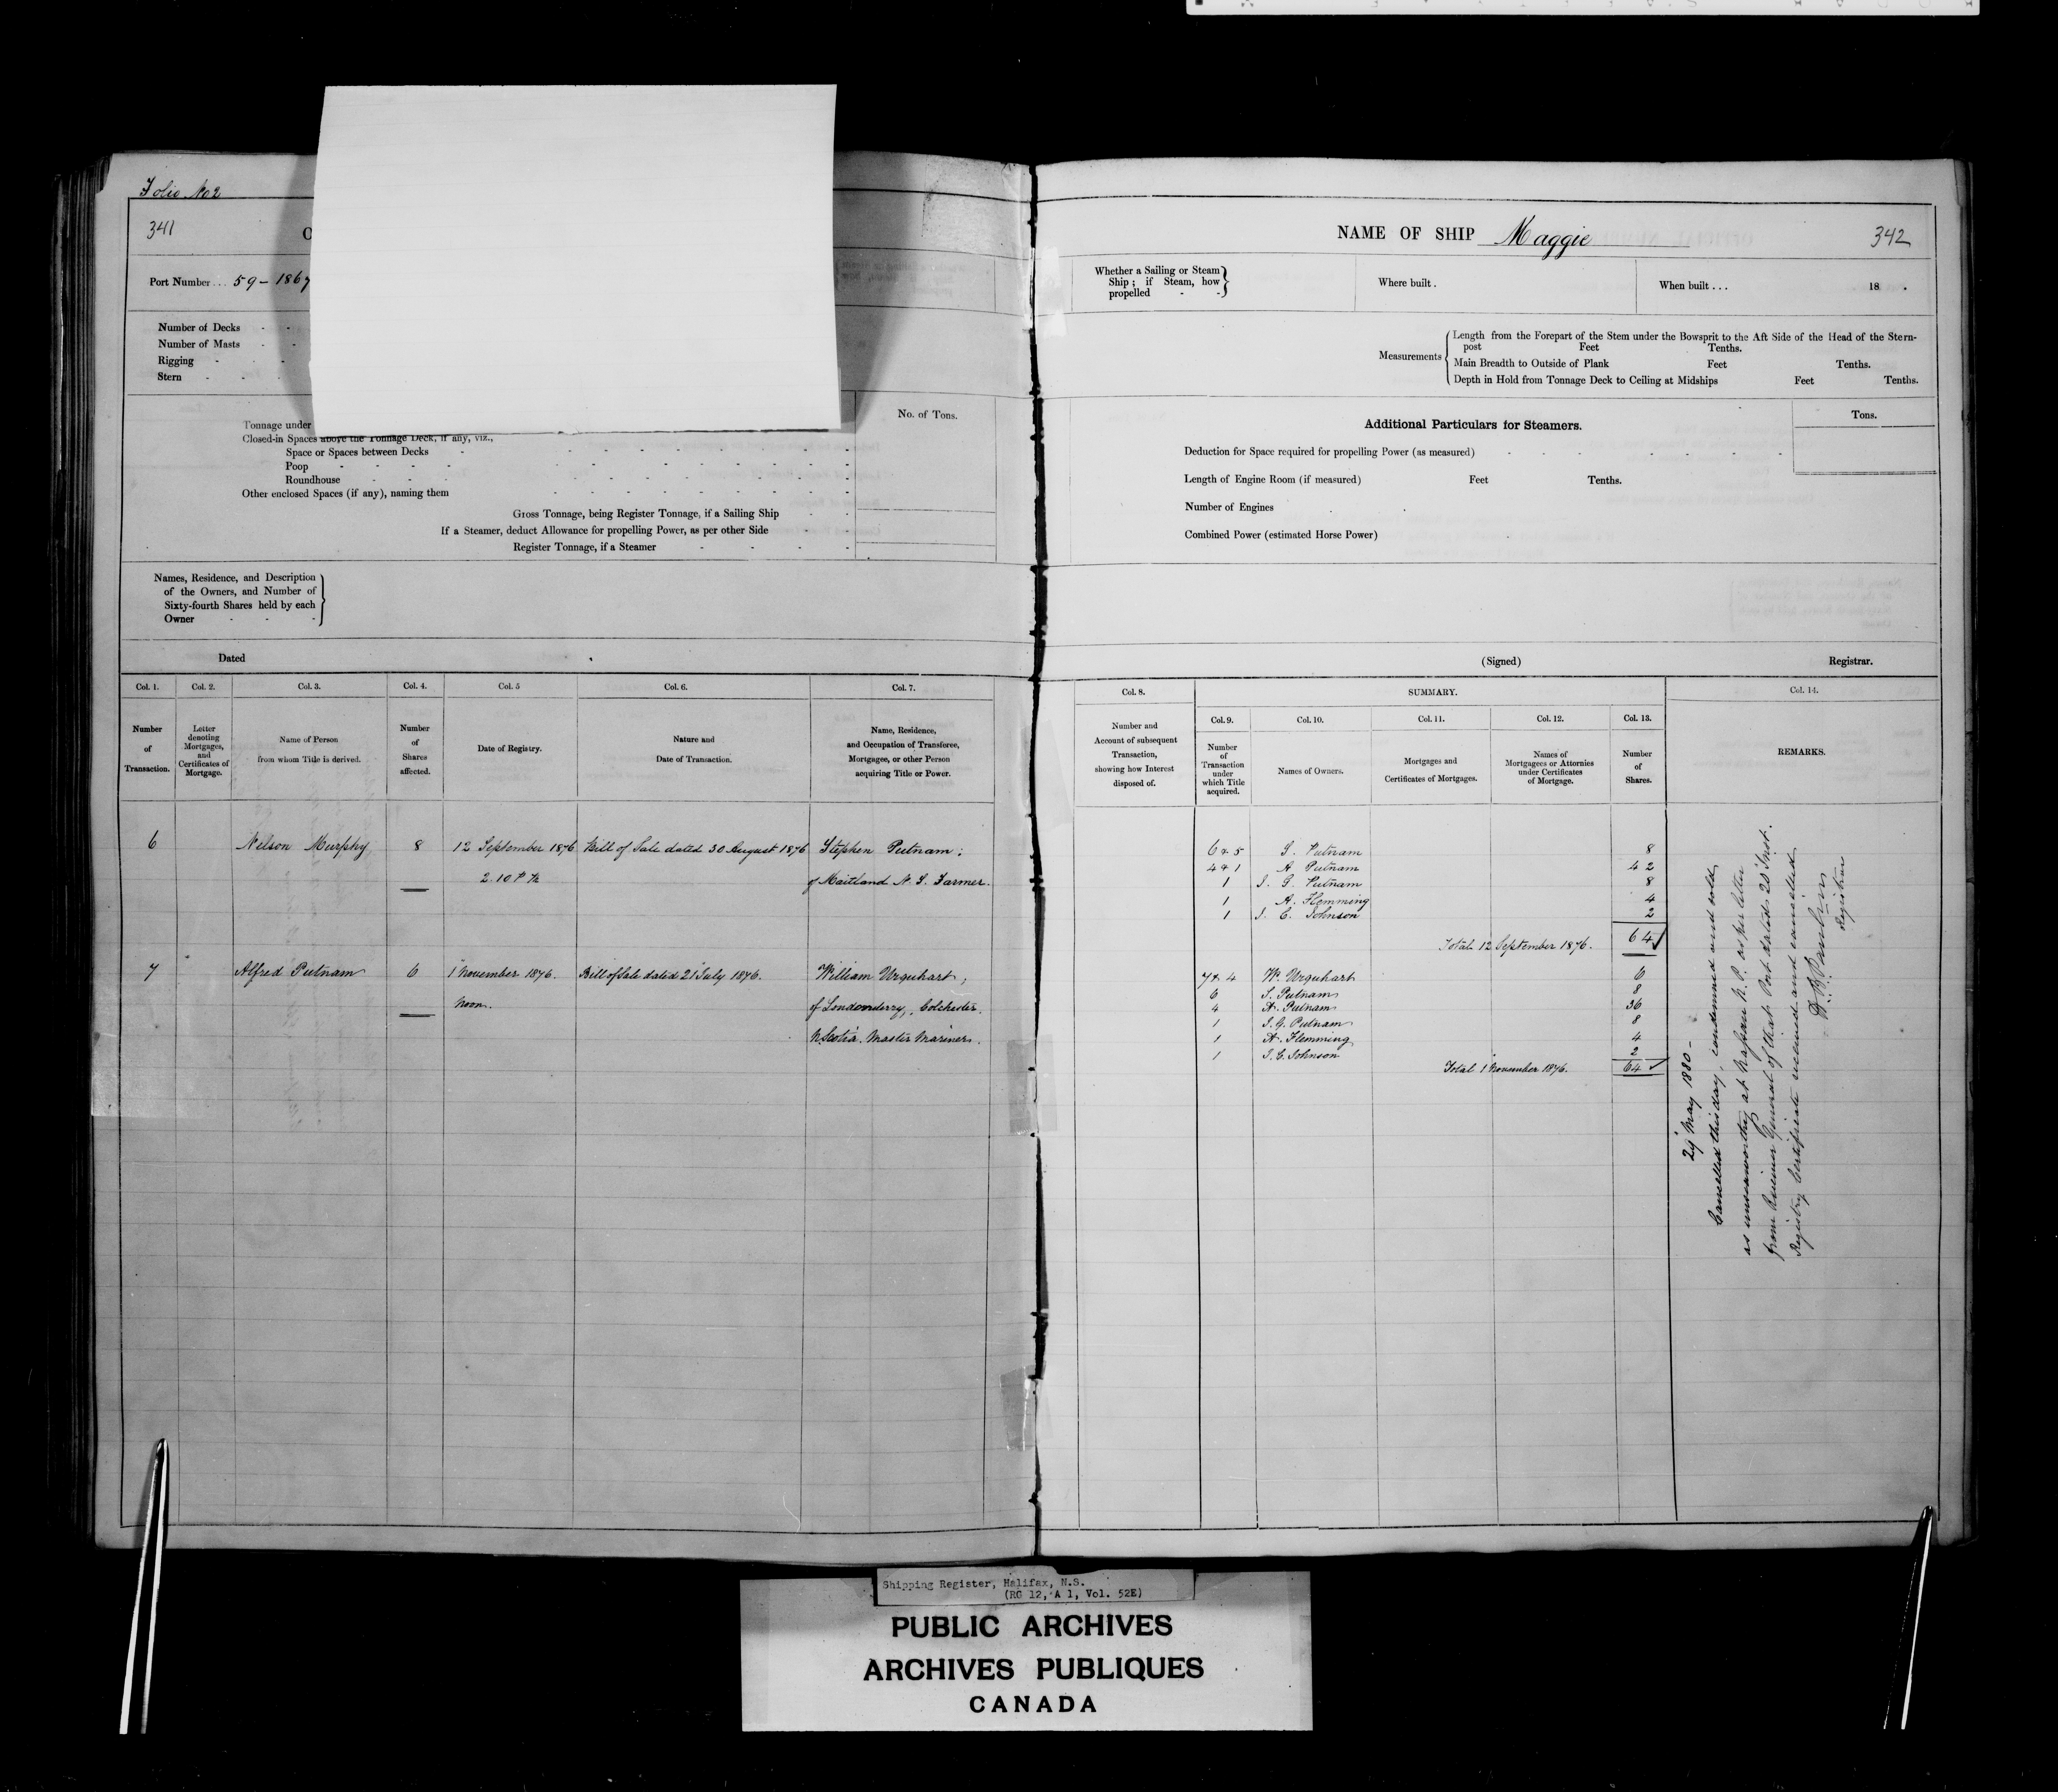 Folio No 2
341
Port Number . . . 59 - 1867
Number of Decks - -
Number of Masts - -
Rigging - - -
Stern - - -
No. of Tons.
Tonnage under
Closed-in Spaces above the Tonnage Deck, if any, viz.,
Space or Spaces between Decks
Poop
Roundhouse
Other enclosed Spaces (if any), naming them
Gross Tonnage, being Register Tonnage, if a Sailing Ship
If a Steamer, deduct Allowance for propelling Power, as per other Side
Register Tonnage, if a Steamer
Names, Residence, and Description
of the Owners, and Number of
Sixty-fourth Shares held by each
Owner
Dated
Col. 1. Col. 2. Col. 3. Col. 4. Col. 5 Col. 6. Col. 7.
Number of Transaction.
Letter denoting Mortgages, and Certificates of Mortgage.
Name of Person from whom Title is derived.
Number of Shares affected.
Date of Registry.
Nature and Date of Transaction.
Name, Residence, and Occupation of Transferee, Mortgagee, or other Person acquiring Title or Power.
6 Nelson Murphy 8 12 September 1876 Bill of Sale dated 30 August 1876 Stephen Putnam;
2.10 P M of Maitland N. S. Farmer.
7 Alfred Putnam 6 1 November 1876. Bill of Sale dated 21 July 1876. William Urquhart;
Noon. of Londonderry, Colchester.
N. Scotia. Master Mariner.
NAME OF SHIP Maggie 342
Whether a Sailing or Steam
Ship; if Steam, how
propelled - -
Where built .
When built . . . 18 .
Measurements
Length from the Forepart of the Stem under the Bowsprit to the Aft Side of the Head of the Stern-
post Feet Tenths.
Main Breadth to Outside of Plank Feet Tenths.
Depth in Hold from Tonnage Deck to Ceiling at Midships Feet Tenths.
Additional Particulars for Steamers.
Tons.
Deduction for Space required for propelling Power (as measured)
Length of Engine Room (if measured) Feet Tenths.
Number of Engines
Combined Power (estimated Horse Power)
(Signed) Registrar.
Col. 8. SUMMARY. Col. 14.
Col. 9. Col. 10. Col. 11. Col. 12. Col. 13.
Number and Account of subsequent Transaction, showing how Interest disposed of.
Number of Transaction under which Title acquired.
Names of Owners.
Mortgages and Certificates of Mortgages.
Names of Mortgagees or Attornies under Certificates of Mortgage.
Number of Shares.
REMARKS.
6 & 5 S. Putnam 8
4 & 1 A Putnam 42
1 I. G. Putnam 8
1 A. Flemming 4
1 I. C. Johnson 2
Total 12 September 1876. 64
7 & 4 W. Urquhart 6
6 S. Putnam 8
4 A. Putnam 36
1 I. G. Putnam 8
1 A. Flemming 4
1 I. C. Johnson 2
Total 1 November 1876. 64
29 May 1880 -
Cancelled this day, condemned and sold
as unseaworthy at Nassau N. P. as per letter
from Receiver General of that Port dated 20 Inst.
Registry Certificate received and cancelled
Registrar
Shipping Register, Halifax, N.S.
(RG 12, A 1, Vol. 52E)
PUBLIC ARCHIVES
ARCHIVES PUBLIQUES
CANADA